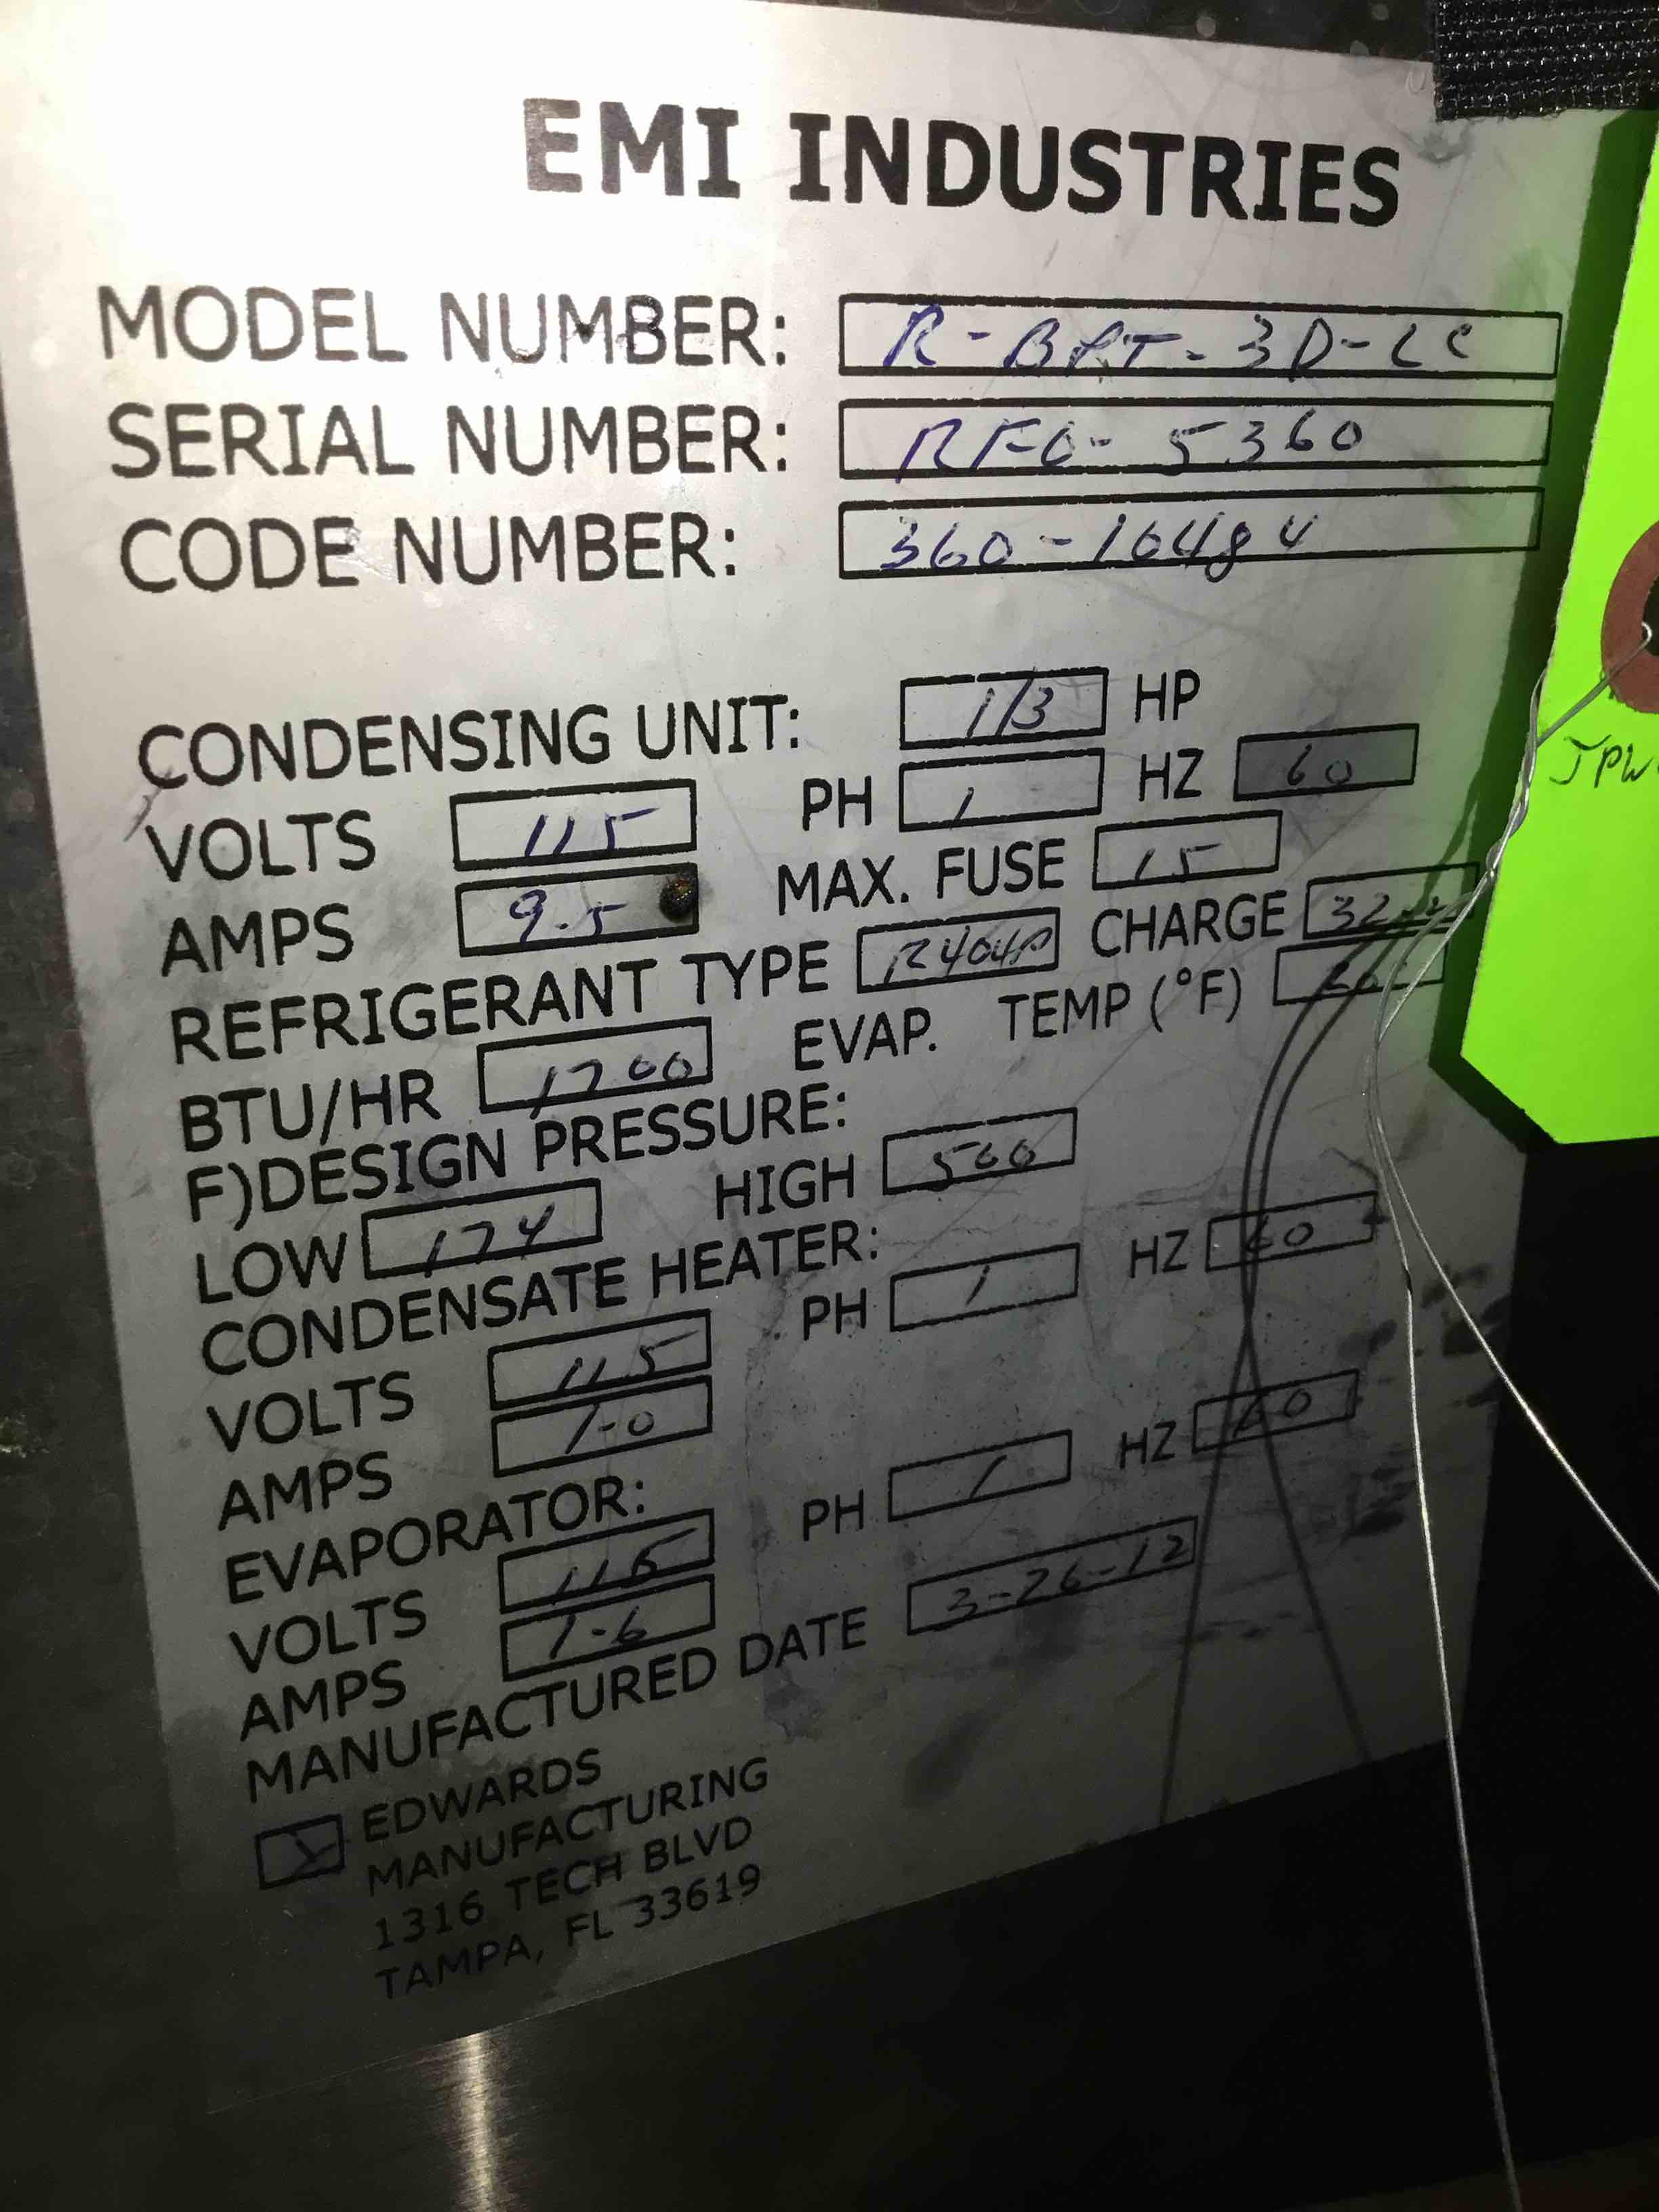 EMI INDUSTRIES
MODEL NUMBER: R-BPT-3D-LC
SERIAL NUMBER: RFO-5360
CODE NUMBER: 360-10484
CONDENSING UNIT: 1/3 HP
VOLTS 115 PH 1 HZ 60
AMPS 9.5 MAX. FUSE 15
REFRIGERANT TYPE R404A CHARGE
BTU/HR 1700 EVAP. TEMP (°F)
F)DESIGN PRESSURE:
LOW 174 HIGH 500
CONDENSATE HEATER:
VOLTS 115 PH 1 HZ 60
AMPS 1-0
EVAPORATOR:
VOLTS 115 PH 1 HZ 60
AMPS 1-6
MANUFACTURED DATE 3-26-12
EDWARDS
MANUFACTURING
1316 TECH BLVD
TAMPA, FL 33619
JPW